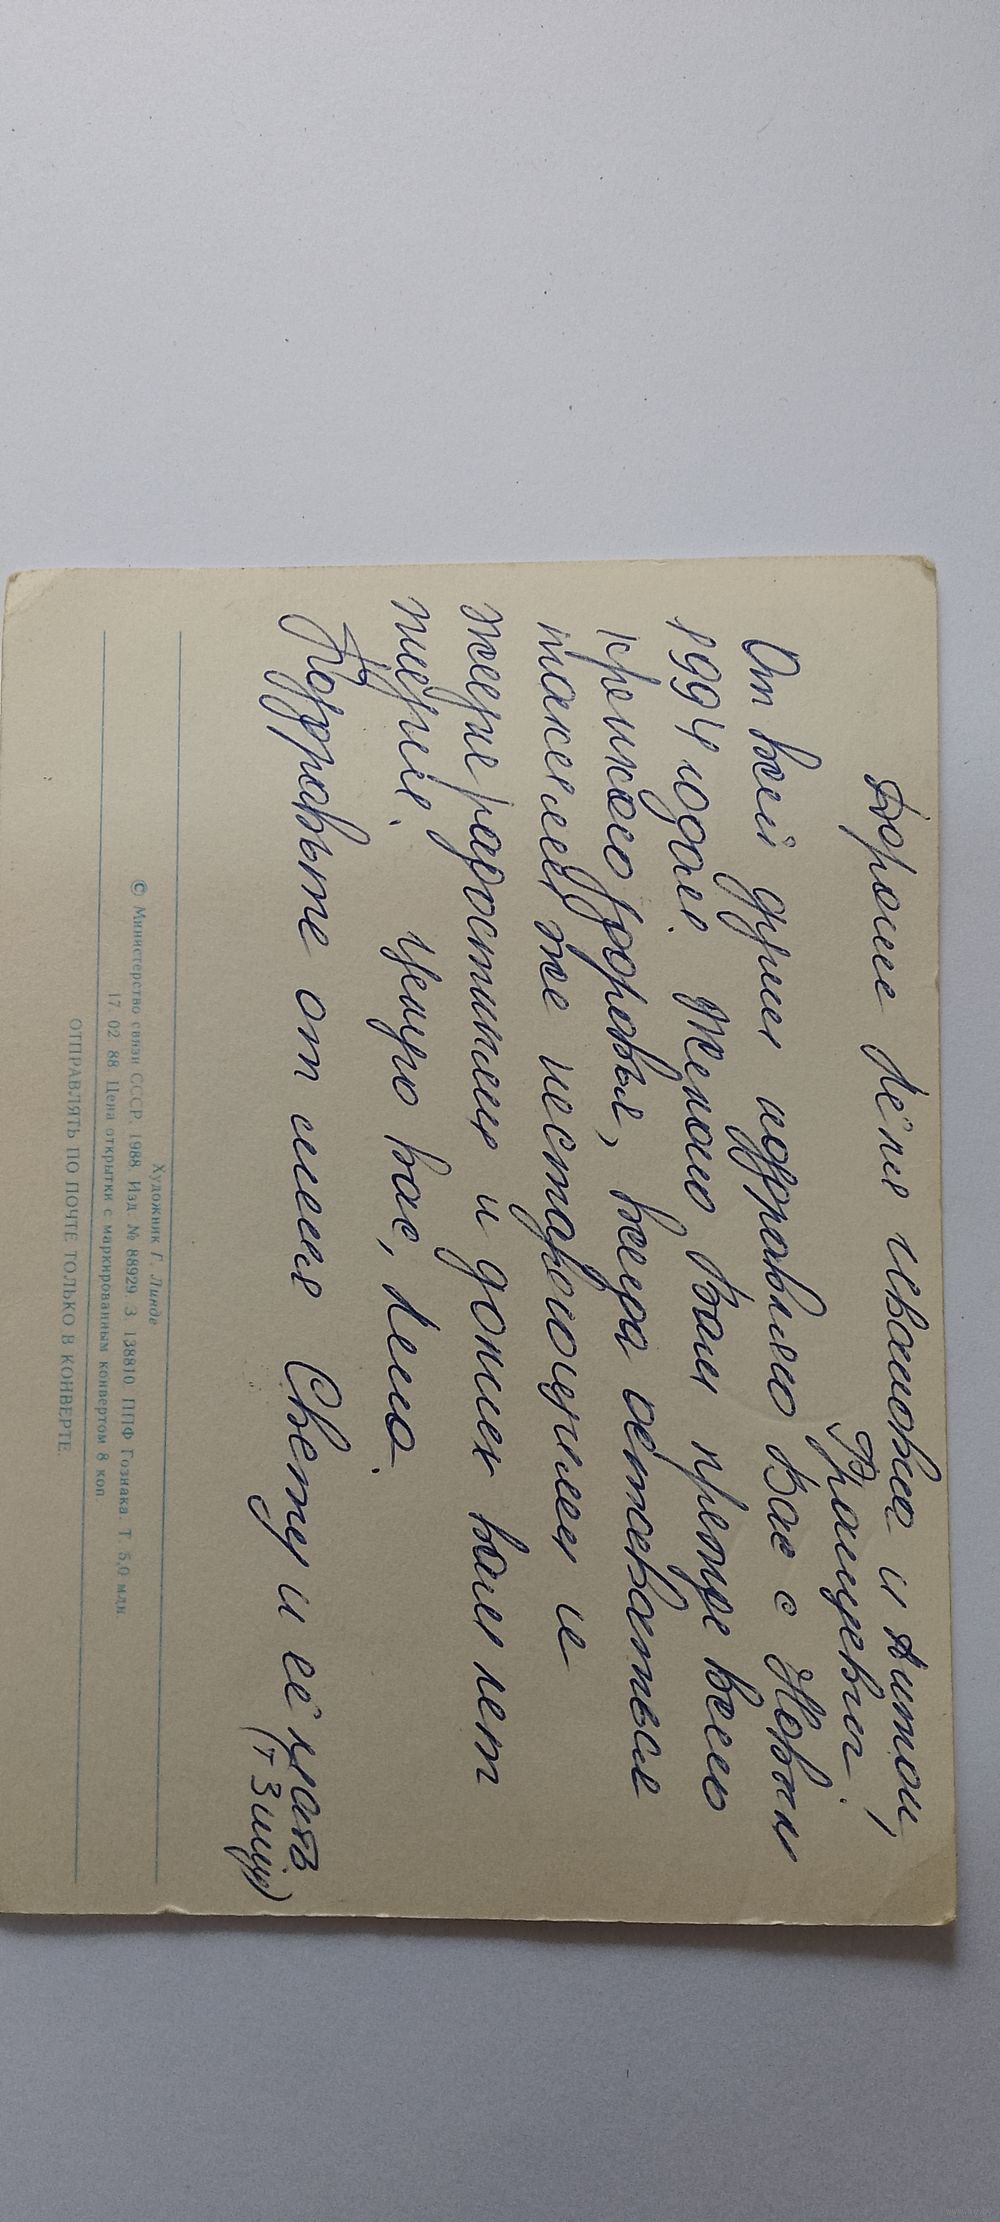 Дорогие Лёля Ивановна и Антон
Францевич!
От всей души поздравляю Вас с Новым
1994 годом! Желаю Вам прежде всего
крепкого здоровья, всегда оставаться
такими же нестареющими и
жизнерадостными и долгих вам лет
жизни. Целую вас, Лена.
Поздравьте от меня Свету и её мать
(+ Зину)
Художник Г. Линде
© Министерство связи СССР. 1988. Изд. № 88929. З. 138810. ППФ Гознака. Т. 5,0 млн.
17 02 88 Цена открытки с маркированным конвертом 8 коп.
ОТПРАВЛЯТЬ ПО ПОЧТЕ ТОЛЬКО В КОНВЕРТЕ.